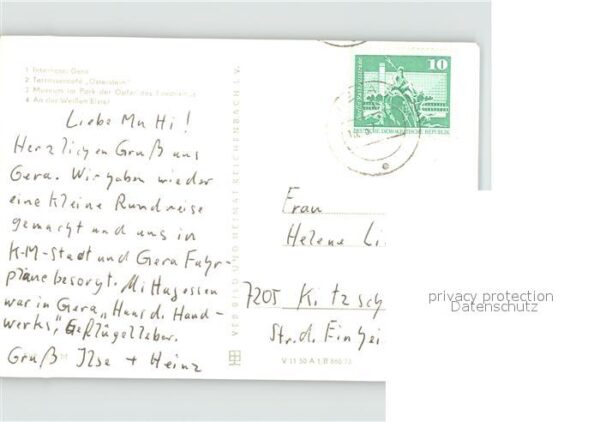 1 Interhotel Gera
2 Terrassencafé „Osterstein“
3 Museum im Park der Opfer des Faschismus
4 An der Weißen Elster
Liebe Mu Hi!
Herzlichen Gruß aus
Gera. Wir haben wieder
eine kleine Rundreise
gemacht und uns in
K-M-Stadt und Gera Fahr-
pläne besorgt. Mittagessen
war in Gera „Haus d. Hand-
werks“, Geflügelleber.
Gruß Ilse + Heinz
VEB BILD UND HEIMAT REICHENBACH I. V.
V 11 50 A 1 B
10
DEUTSCHE DEMOKRATISCHE REPUBLIK
Frau
Helene Li
7205 Kitzsch
Str. d. Einhei
privacy protection
Datenschutz